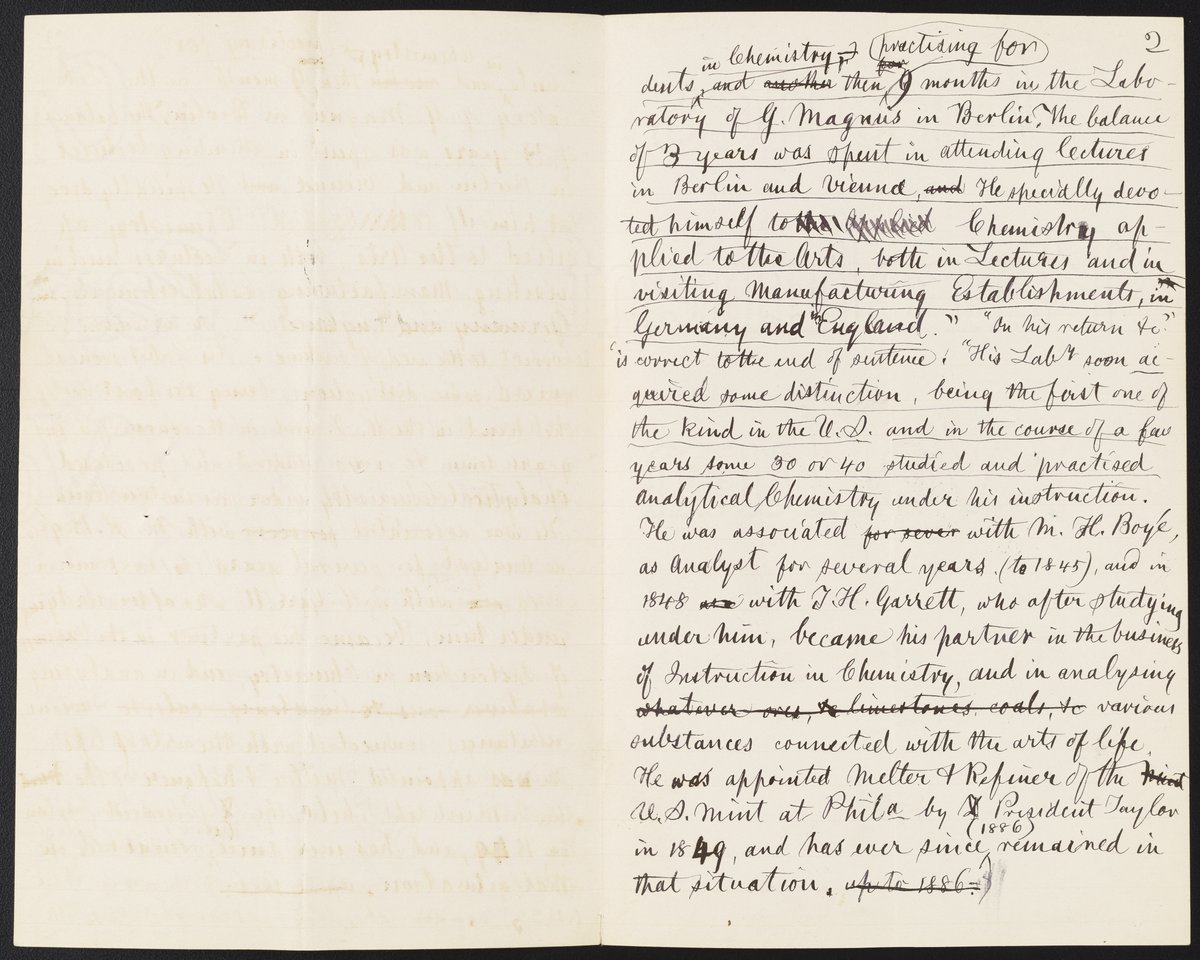 2
in Chemistry, practising for
dents, and another then for 9 months in the Labo-
ratory of G. Magnus in Berlin. The balance
of 3 years was spent in attending lectures
in Berlin and Vienna, and He specially devo-
ted himself to Chemistry ap-
plied to the Arts, both in Lectures and in
visiting Manufacturing Establishments, in
Germany and England." "On his return &c."
is correct to the end of sentence. "His Laby soon ac-
quired some distinction, being the first one of
the kind in the U.S. and in the course of a few
years some 30 or 40 studied and practised
analytical Chemistry under his instruction.
He was associated for sever with M. H. Boyé,
as Analyst for several years (to 1845), and in
1848 with T. H. Garrett, who after studying
under him, became his partner in the business
of Instruction in Chemistry, and in analysing
whatever ores, & limestones coals, &c various
substances connected with the arts of life.
He was appointed Melter & Refiner of the Mint
U.S. Mint at Phila by President Taylor
(1886)
in 1849, and has ever since remained in
that situation. up to 1886.